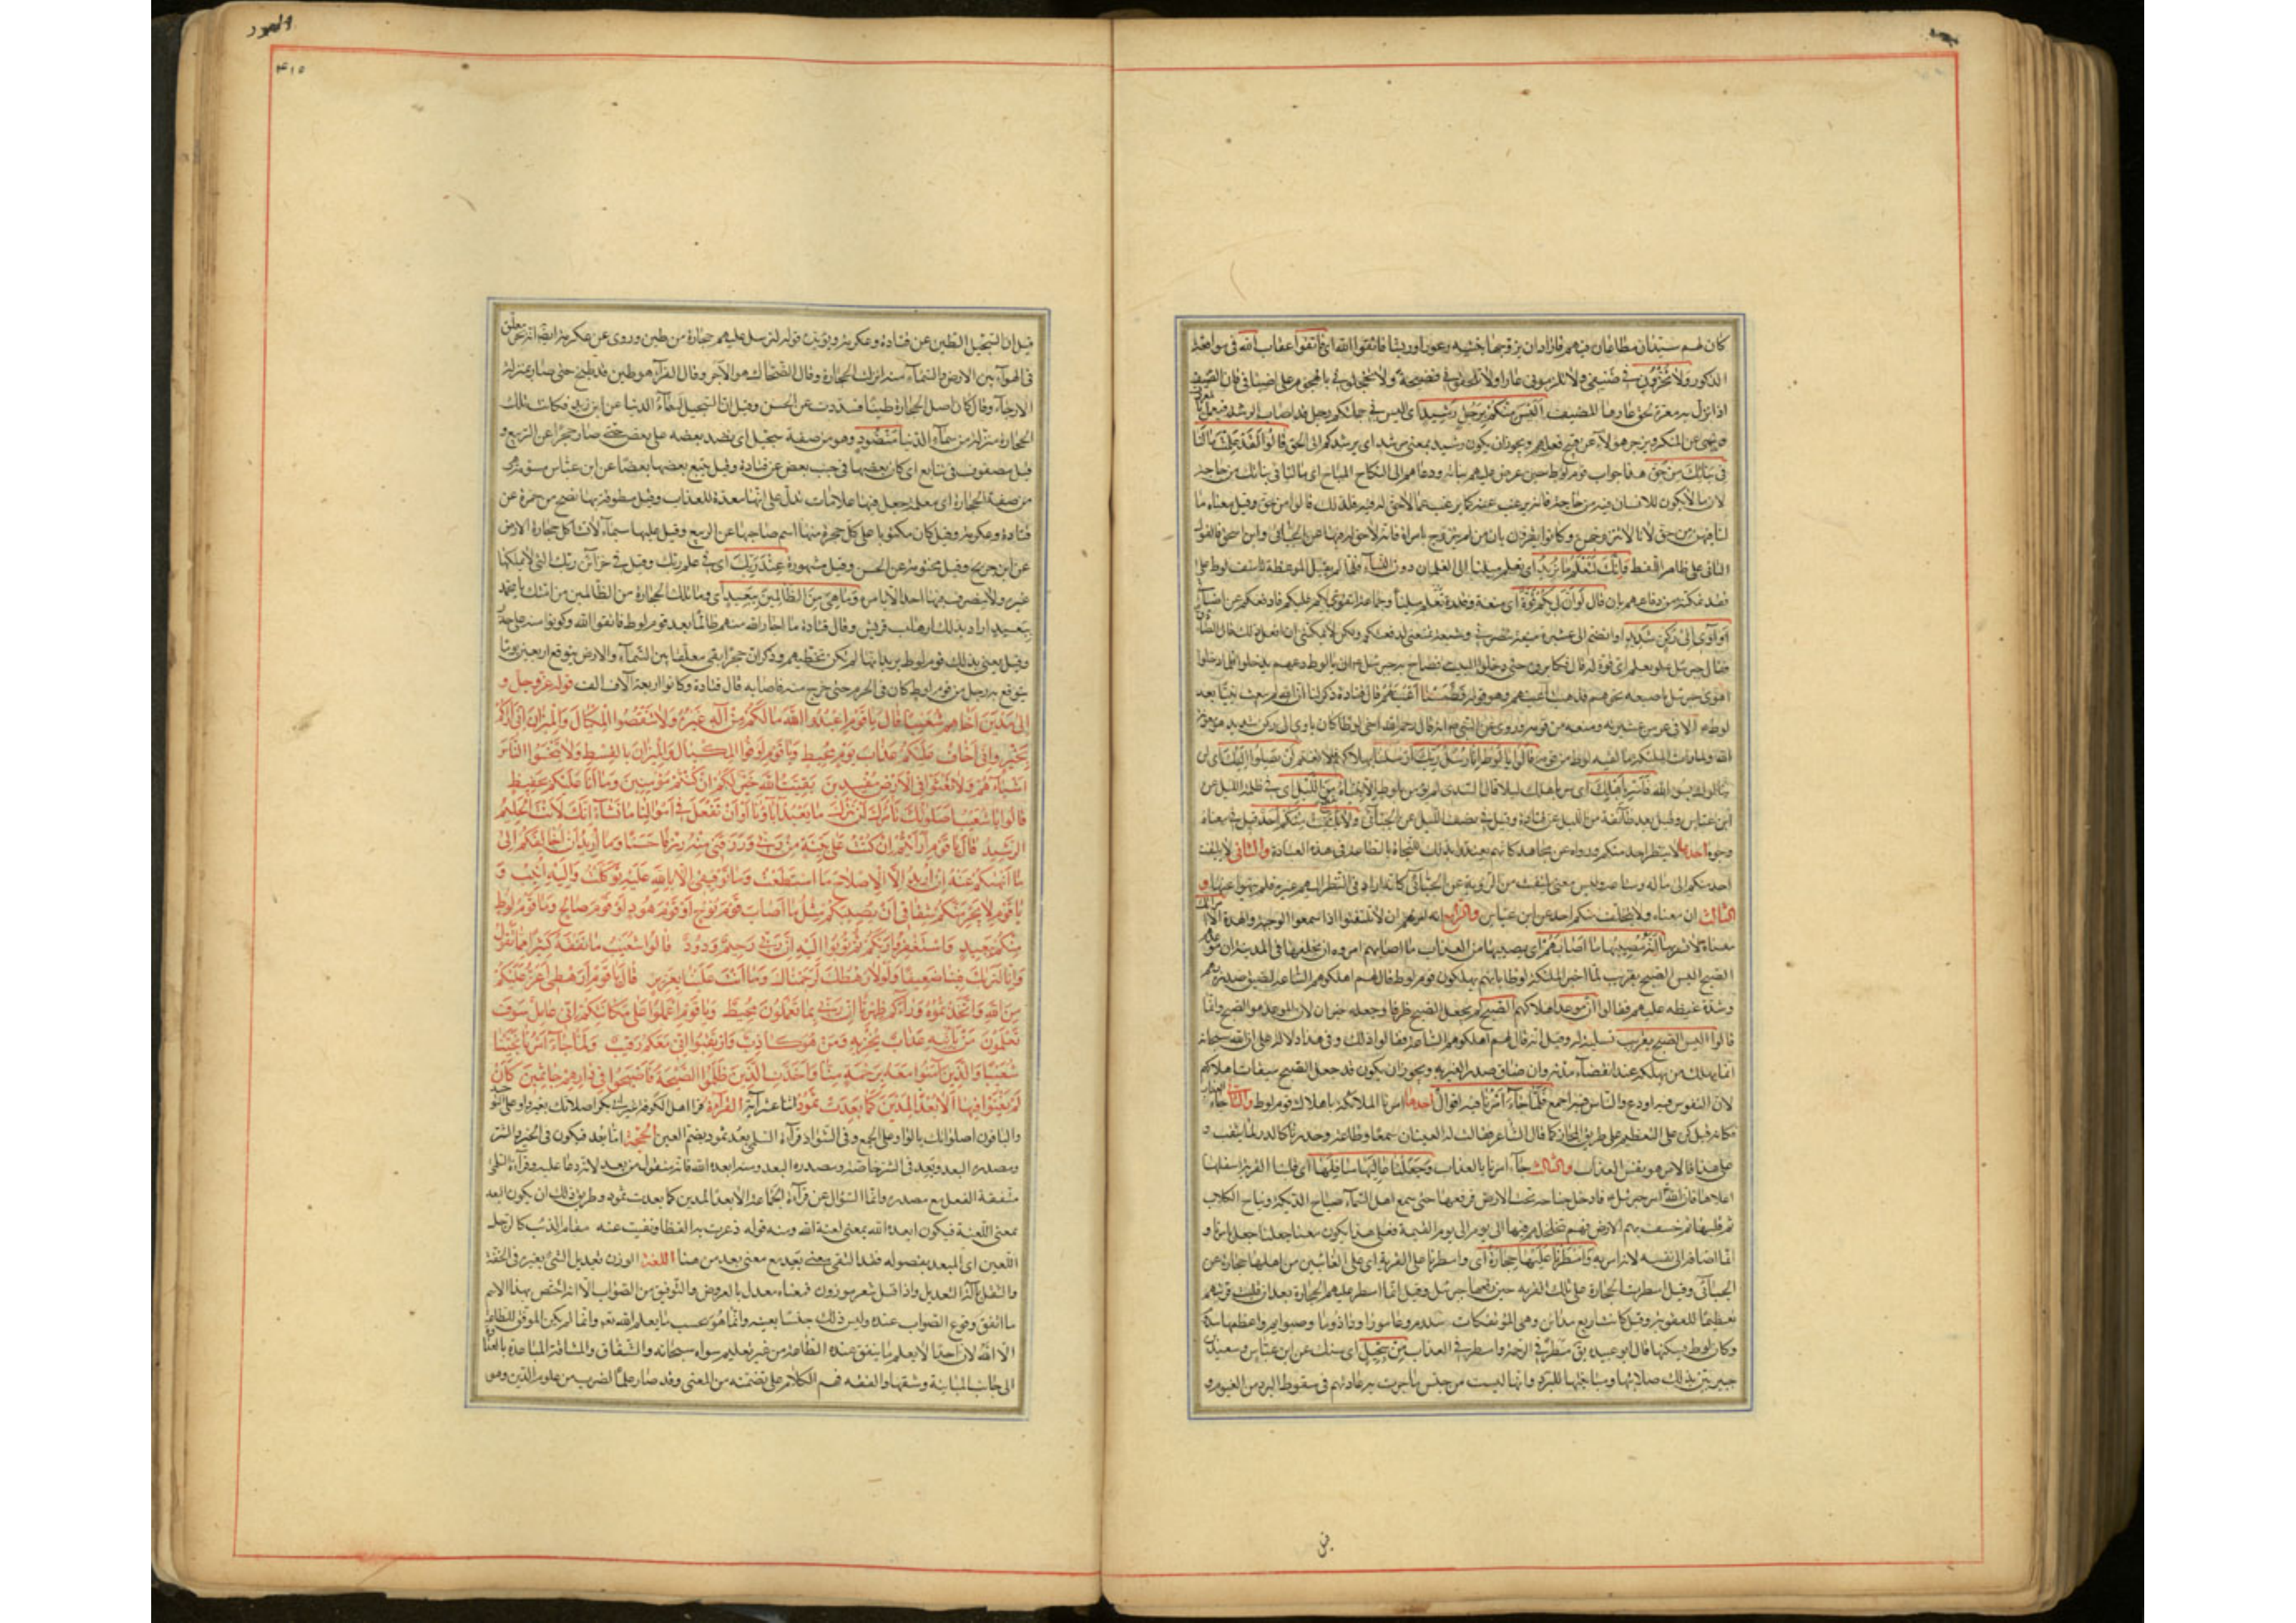 كان لهم سيدان مطاعان فيهم فاراد ان يزوجهما بنتيه زعورا وريثا فاتقوا الله اى فاتقوا عقاب الله فى مواقعة
الذكور ولا تخزون فى ضيفى ولا تلزمونى عارا ولا تلحقوا بى فضيحة ولا تخجلونى بالهجوم على اضيافى فان الضيف
اذا نزل به معرة لحق عارها للمضيف اليس منكم رجل رشيد اى اليس فى جملتكم رجل قد اصاب الرشد فيعمل بالمعروف
وينهى عن المنكر ويزجر هؤلاء عن قبيح فعلهم ويجوز ان يكون رشيد بمعنى مرشد اى يرشدكم الى الحق قالوا لقد علمت مالنا
فى بناتك من حق هذا جواب قوم لوط حين عرض عليهم بناته ودعاهم الى النكاح المباح اى مالنا فى بناتك من حاجة
لان ما لا يكون للانسان فيه حاجة فانه يرغب عنه كما يرغب عما لا حق له فيه فلذلك قالوا من حق وقيل معناه ما
لنا فيهن من حق لانا لا نتزوجهن وكانوا يقرون بان من لم يتزوج بامراة فانه لا حق له فيها عن الجبائى وابن اسحق فالقول
الثانى على ظاهر اللفظ وانك لتعلم ما نريد اى تعلم ميلنا الى الغلمان دون النساء فلما لم يقبلوا الموعظة تاسف لوط على
فقد تمكنه من دفاعهم بان قال لو ان لى بكم قوة اى منعة وقدرة
او آوى الى ركن شديد او انضم الى عشيرة منيعة تنصرنى وشيعة تمنعنى لدفعتكم ولكن لا يمكننى ان افعل ذلك قال
فقال جبرئيل
اهوى جبرئيل باصبعه نحوهم فذهبت اعينهم وهو قوله فطمسنا اعينهم قال قتادة ذكر لنا ان الله لم يبعث نبيا بعد
لوط الا فى عز من عشيرته ومنعة من قومه وروى عن النبى ص انه قال رحم الله اخى لوطا كان ياوى الى ركن شديد
الله ولما رات الملئكة ما لقيه لوط من قومه قالوا يا لوط انا رسل ربك ارسلنا بهلاكهم فلا تغتم لن يصلوا اليك اى لن
ينالوك بسوء فاسر باهلك اى سر باهلك ليلا وقال السدى لم يؤمن بلوط الا ابنتاه بقطع من الليل اى فى ظلمة الليل عن
ابن عباس وقيل بعد طائفة من الليل عن قتادة وقيل فى نصف الليل عن الجبائى ولا يلتفت منكم احد قيل فى معناه
وجوه احدها لا ينتظر احد منكم وراه عن مجاهد والثانى لا يلتفت
احد منكم الى ماله
الثالث ان معناه ولا يتخلف منكم احد عن ابن عباس والرابع انه امرهم ان لا يلتفتوا اذا سمعوا الوجبة والهدة الا امراتك
معناه لا تسر بها انه مصيبها ما اصابهم اى يصيبها من العذاب ما اصابهم امروه ان يخلفها فى المدينة ان موعدهم
الصبح اليس الصبح بقريب لما اخبر الملئكة لوطا بانهم يهلكون قوم لوط قال لهم اهلكوهم الساعة لضيق صدره بهم
وشدة غيظه عليهم فقالوا ان موعد اهلاكهم الصبح لم يجعل الصبح ظرفا وجعله خبر ان لان الموعد هو الصبح وانما
قالوا اليس الصبح بقريب تسلية له وقيل انه قال لهم اهلكوهم الساعة فقالوا ذلك وفى هذا دلالة على ان الله سبحانه
انما يهلك من يهلكه عند انقضاء مدته وان ضاق صدر الغير به ويجوز ان يكون قد جعل الصبح ميقات هلاكهم
لان النفوس فيه اودع والناس فيه اجمع فلما جاء امرنا فيه اقوال احدها امرنا الملائكة باهلاك قوم لوط والثانى جاء العذاب
كانه قيل كن على التعظيم على طريق المجاز كما قال الشاعر فقالت له العينان سمعا وطاعة وحدرتا كالدر لما يثقب
على هذا فالامر هو نفس العذاب والثالث جاء امرنا بالعذاب وجعلنا عاليها سافلها اى قلبنا القرية اسفلها
اعلاها فان الله امر جبرئيل فادخل جناحه تحت الارض فرفعها حتى سمع اهل السماء صياح الديكة ونباح الكلاب
ثم قلبها ثم خسف بهم الارض فهم يتجلجلون فيها الى يوم القيمة وعلى هذا يكون معنا جعلنا جعل امرنا و
انما اضافه الى نفسه لانه امر به وامطرنا عليها حجارة اى وامطرنا على القرية اى على الغائبين من اهلها حجارة عن
الجبائى وقيل امطرت الحجارة على تلك القرية حين رفعها جبرئيل وقيل انما امطر عليهم الحجارة بعد ان قلبت قريتهم
تغليظا للعقوبة وقيل كانت اربع مداين وهى المؤتفكات سدوم وعامورا وداذوما وصبوايم واعظمها سدوم
وكان لوط يسكنها قال ابو عبيدة يقال مطر فى الرحمة وامطر فى العذاب من سجيل اى سنك عن ابن عباس وسعيد بن
جبير بين بذلك صلابتها ومباينتها للبرد وانها ليست من جنس ما جرت به عادتهم فى سقوط البرد من الغيوم و
قيل
هود
٤١٥
قيل ان السجيل الطين عن قتادة وعكرمة ويؤيده قوله لنرسل عليهم حجارة من طين وروى عن عكرمة ايضا انه بحر معلق
فى الهواء بين الارض والسماء منه انزلت الحجارة وقال الضحاك هو الآجر وقال الفراء هو طين قد طبخ حتى صار بمنزلة
الارحاء وقال كان اصل الحجارة طينا فشددت عن الحسن وقيل ان السجيل السماء الدنيا عن ابن زيد فكانت تلك
الحجارة منزلة من سماء الدنيا منضود وهو من صفة سجيل اى نضد بعضه على بعض حتى صار حجرا عن الربيع و
قيل مصفوف فى تتابع اى كان بعضها فى جنب بعض عن قتادة وقيل يتبع بعضها بعضا عن ابن عباس مسومة
من صفة الحجارة اى معلمة جعل فيها علامات تدل على انها معدة للعذاب وقيل مطوقة بها نضح من حمرة عن
قتادة وعكرمة وقيل كان مكتوبا على كل حجرة منها اسم صاحبها عن الربيع وقيل عليها سيماء لا تشاكل حجارة الارض
عن ابن جريج وقيل مختومة عن الحسن وقيل مشهورة عند ربك اى فى علم ربك وقيل فى خزائن ربك التى لا يملكها
غيره ولا يتصرف فيها احد الا بامره وما هى من الظالمين ببعيد اى وما تلك الحجارة من الظالمين من امتك يا محمد
ببعيد اراد بذلك ارهاب قريش وقال قتادة ما اجار الله منهم ظالما بعد قوم لوط فاتقوا الله وكونوا منه على حذر
وقيل يعنى بذلك قوم لوط يريد انها لم تكن تخطئهم وذكر ان حجرا بقى معلقا بين السماء والارض يتوقع اربعين يوما
يتوقع به رجل من قوم لوط كان فى الحرم حتى خرج منه فاصابه قال قتادة وكانوا اربعة آلاف الف قوله عز وجل و
الى مدين اخاهم شعيبا قال يا قوم اعبدوا الله مالكم من اله غيره ولا تنقصوا المكيال والميزان انى اريكم
بخير وانى اخاف عليكم عذاب يوم محيط ويا قوم اوفوا المكيال والميزان بالقسط ولا تبخسوا الناس
اشياءهم ولا تعثوا فى الارض مفسدين بقيت الله خير لكم ان كنتم مؤمنين وما انا عليكم بحفيظ
قالوا يا شعيب اصلوتك تأمرك ان نترك ما يعبد آباؤنا او ان نفعل فى اموالنا ما نشاء انك لانت الحليم
الرشيد قال يا قوم ارأيتم ان كنت على بينة من ربى ورزقنى منه رزقا حسنا وما اريد ان اخالفكم الى
ما انهيكم عنه ان اريد الا الاصلاح ما استطعت وما توفيقى الا بالله عليه توكلت واليه انيب و
يا قوم لا يجرمنكم شقاقى ان يصيبكم مثل ما اصاب قوم نوح او قوم هود او قوم صالح وما قوم لوط
منكم ببعيد واستغفروا ربكم ثم توبوا اليه ان ربى رحيم ودود قالوا يا شعيب ما نفقه كثيرا مما تقول
وانا لنريك فينا ضعيفا ولولا رهطك لرجمناك وما انت علينا بعزيز قال يا قوم ارهطى اعز عليكم
من الله واتخذتموه وراءكم ظهريا ان ربى بما تعملون محيط ويا قوم اعملوا على مكانتكم انى عامل سوف
تعلمون من يأتيه عذاب يخزيه ومن هو كاذب وارتقبوا انى معكم رقيب ولما جاء امرنا نجينا
شعيبا والذين آمنوا معه برحمة منا واخذت الذين ظلموا الصيحة فاصبحوا فى ديارهم جاثمين كان
لم يغنوا فيها الا بعدا لمدين كما بعدت ثمود اثنا عشر آية القراءة قرا اهل الكوفة غير ابى بكر اصلاتك بغير واو على التوحيد
والباقون اصلواتك بالواو على الجمع وفى الشواذ قراءة السلمى بعدت ثمود بضم العين الحجة اما بعد فيكون فى الخير والشر
ومصدره البعد وبعد فى الشر خاصة ومصدره البعد ومنه ابعده الله فانه منقول من بعد لانه دعاء عليه وقراءة السلمى
متفقة الفعل مع مصدره وانما السؤال عن قراءة الجماعة الا بعدا لمدين كما بعدت ثمود وطريق ذلك ان يكون البعد
بمعنى اللعنة فيكون ابعده الله بمعنى لعنه الله ومنه قوله ذعرت به القطا ونفيت عنه مقام الذئب كالرجل
اللعين اى المبعد اللغة الوزن تعديل الشئ بغيره فى الخفة
والثقل بآلة التعديل واذا قيل شعر موزون فمعناه معدل بالعروض والتوفيق من الصواب الا انه اختص بهذا الاسم
ما اتفق وقوع الصواب عنده وليس ذلك جنسا بعينه وانما هو بحسب ما يعلم الله تعالى وانما لم يكن الموفق للطاعة
الا الله لان احدا لا يعلم ما يتفق عنده الطاعة من غير تعليم سواه سبحانه والشقاق والمشاقة المباعدة بالعداوة
الى جانب المباينة وشقها والفقه فهم الكلام على تضمنه من المعنى وقد صار علما لضرب من علوم الدين وهو